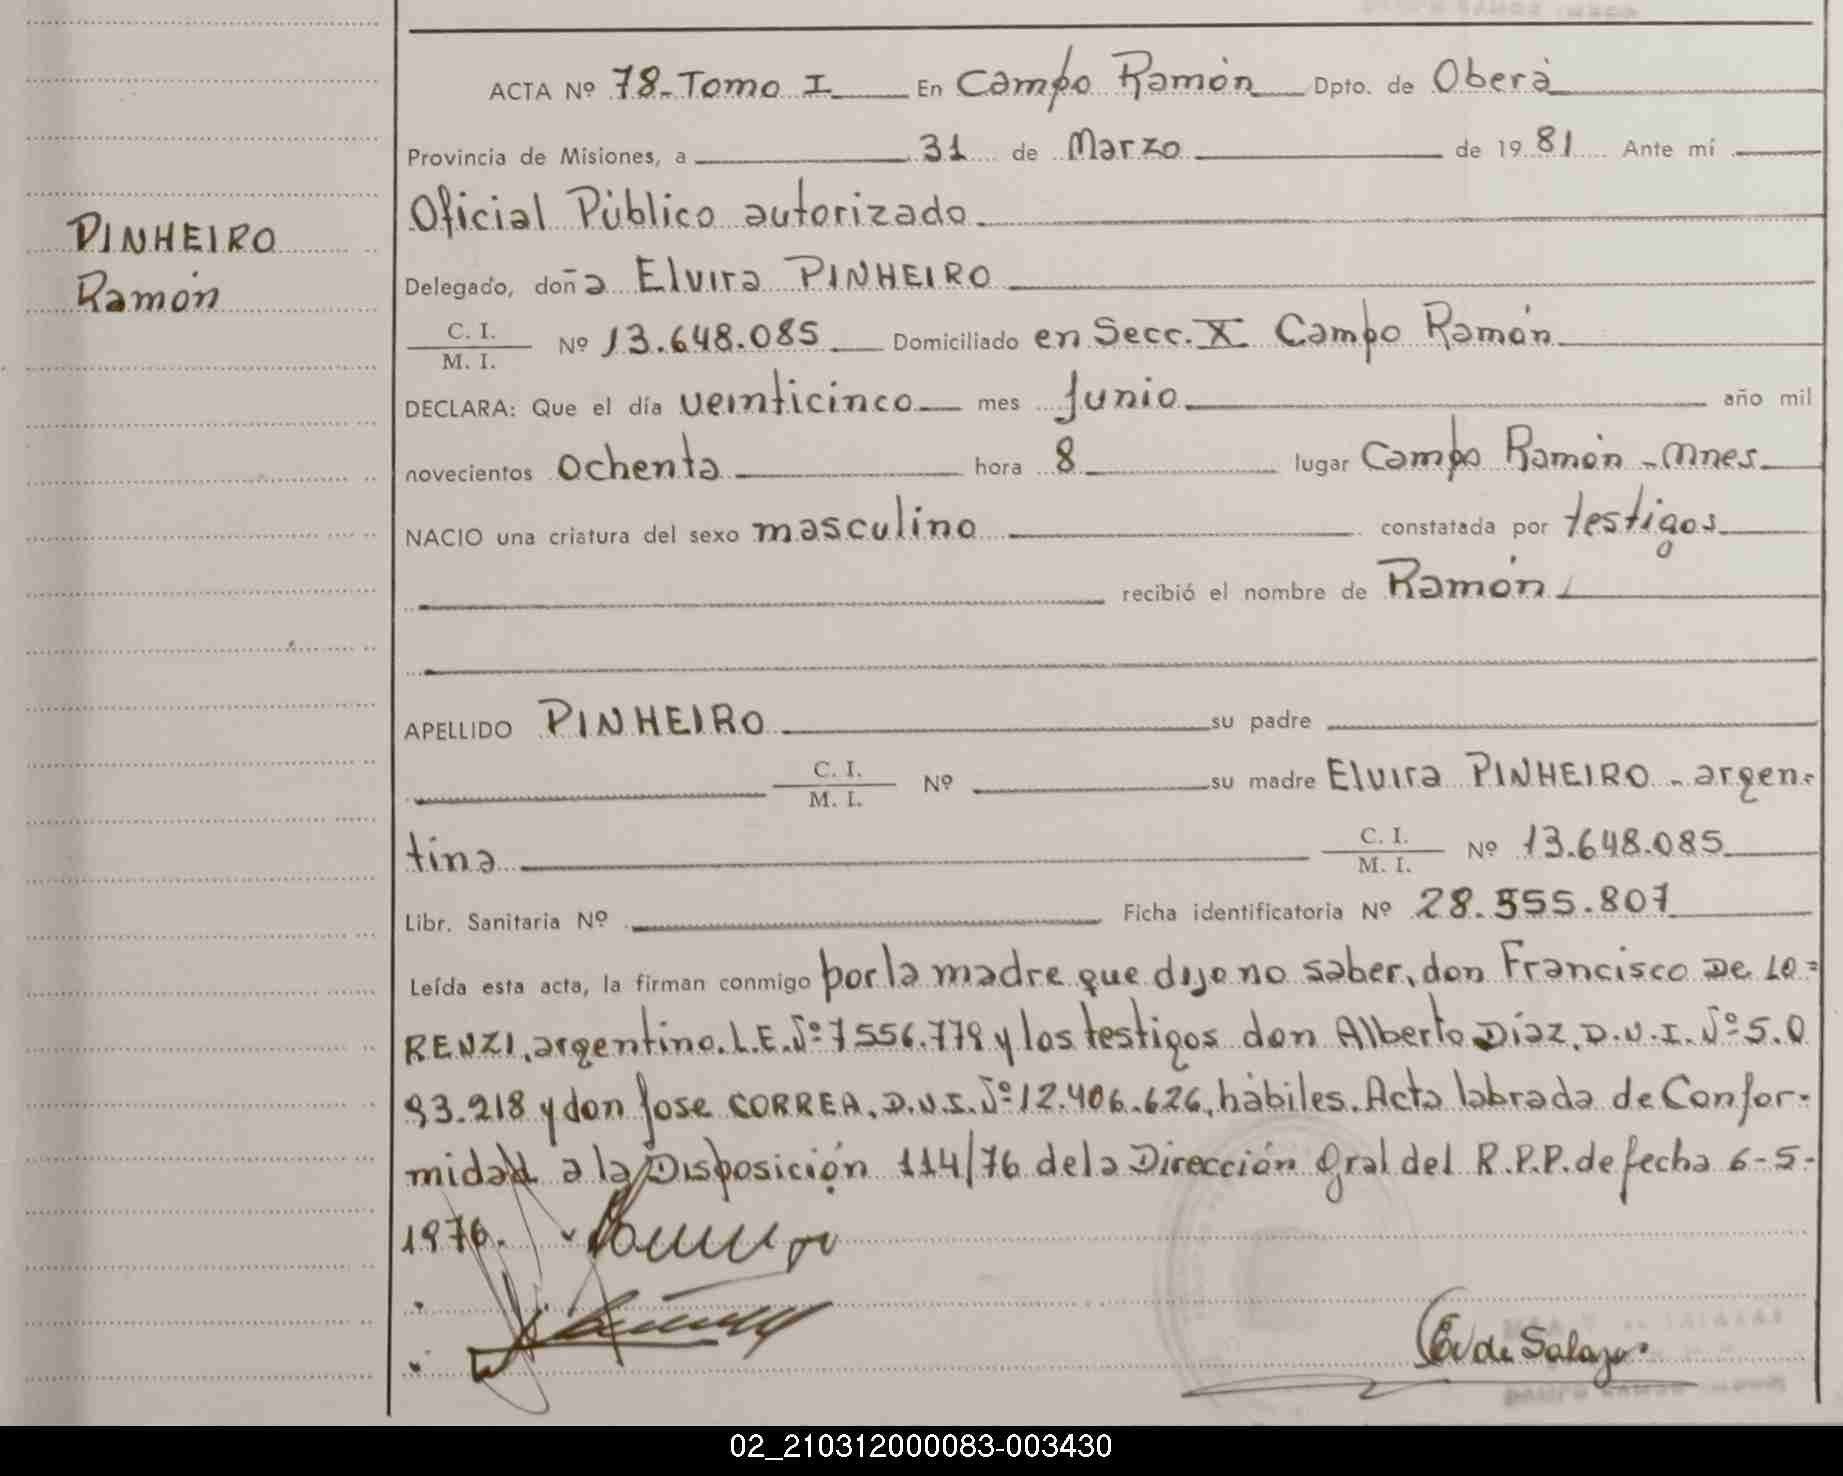 ACTA Nº 78 - Tomo I En Campo Ramón Dpto. de Oberá
Provincia de Misiones, a 31 de Marzo de 1981 Ante mí
PINHEIRO
Ramón
Oficial Público autorizado
Delegado, doña Elvira PINHEIRO
C. I. / M. I. Nº 13.648.085 Domiciliado en Secc. X Campo Ramón
DECLARA: Que el día veinticinco mes Junio año mil
novecientos ochenta hora 8 lugar Campo Ramón - Mnes
NACIO una criatura del sexo masculino constatada por testigos
recibió el nombre de Ramón
APELLIDO PINHEIRO su padre
C. I. / M. I. Nº su madre Elvira PINHEIRO - argen-
tina C. I. / M. I. Nº 13.648.085
Libr. Sanitaria Nº Ficha identificatoria Nº 28.555.807
Leída esta acta, la firman conmigo por la madre que dijo no saber, don Francisco DE LO=
RENZI, argentino. L.E. Nº 7556.779 y los testigos don Alberto Díaz, D.N.I. Nº 5.0
93.218 y don Jose CORREA, D.N.I. Nº 12.406.626, hábiles. Acta labrada de Confor-
midad a la Disposición 114/76 de la Dirección Gral del R.P.P. de fecha 6-5-
1976.
E V de Salazar
02_210312000083-003430